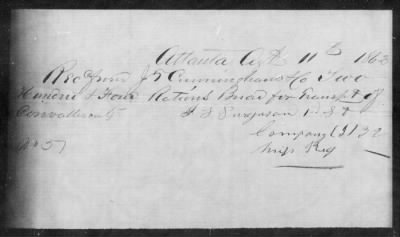 Atlanta Oct 11th 1863
Recd from J T Cunningham & Co Two
Hundred & Four Rations Bread for Transpt of
Convalescents
J J Surgeson
Company 32
Miss Reg
No 51